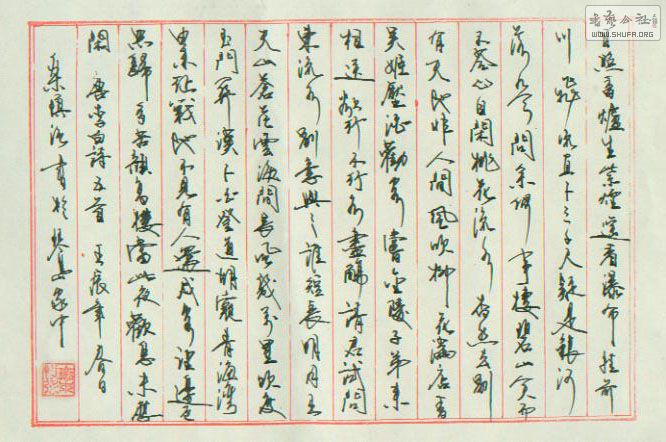 书艺公社
WWW.SHUFA.ORG
日照香爐生紫煙遙看瀑布挂前
川飛流直下三千尺疑是銀河
落九天問余何事棲碧山笑而
不答心自閑桃花流水杳然去別
有天地非人間風吹柳花滿店香
吳姬壓酒勸客嘗金陵子弟來
相送欲行不行各盡觴請君試問
東流水別意與之誰短長明月出
天山蒼茫雲海間長風幾萬里吹度
玉門關漢下白登道胡窺青海灣
由來征戰地不見有人還戍客望邊色
思歸多苦顏高樓當此夜歎息未應
閑 唐李白詩五首 壬辰年春日
書於琴島家中